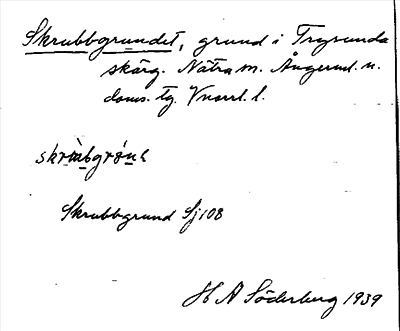 Skrubbgrundet, grund i Trysunda
skärg. Nätra sn. Ångerml. n.
doms. tg. Vnorrl. l.
Skrubbgrund Sj 108
H A Söderberg 1939